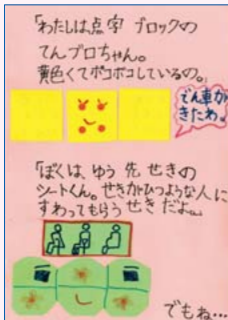 「わたしは点字 ブロックの
てんブロちゃん。
黄色くてボコボコしているの。」
でん車が
きたわ。
「ぼくは、ゆう 先 せきの
シートくん。せきがひつような人に
すわってもらう せき だよ。」
でもね…